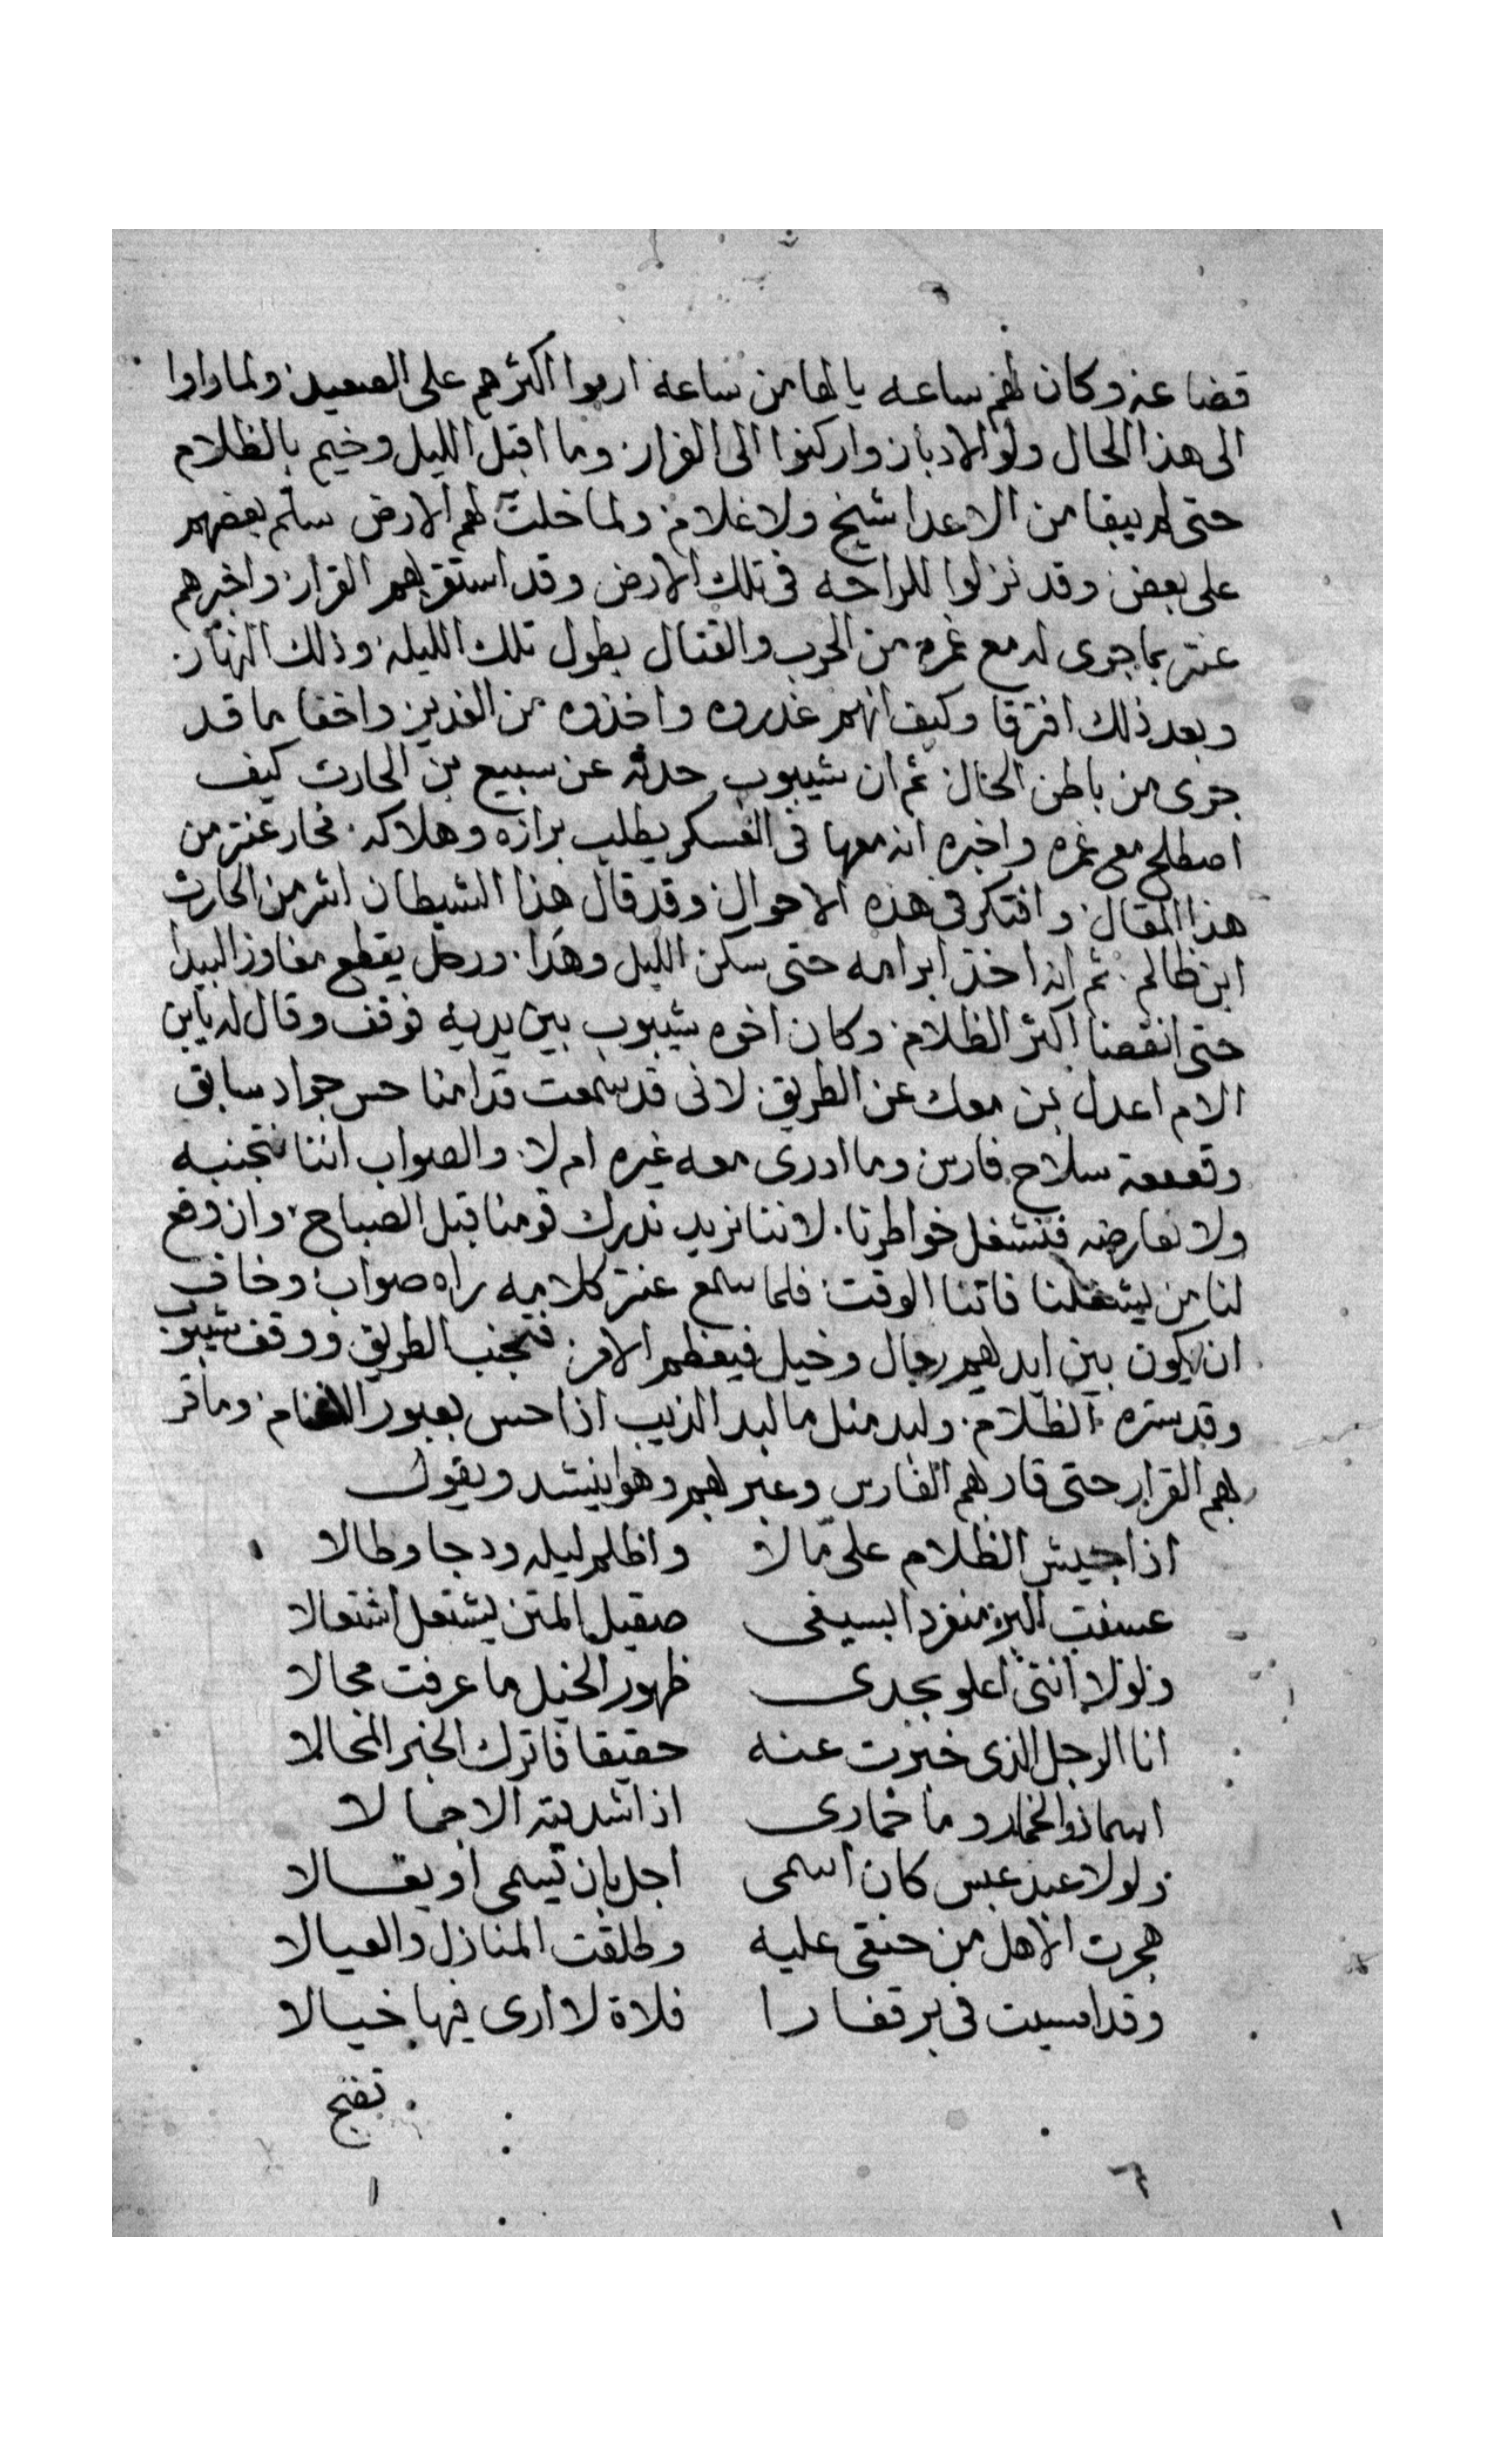 قضاعه وكان لهم ساعه يالها من ساعه ارموا اكثرهم على الصعيد ولما راوا
الى هذا الحال ولوا الادبار واركنوا الى الفرار وما اقبل الليل وخيم بالظلام
حتى لم يبقا من الاعدا شيخ ولا غلام ولما خلت لهم الارض سلم بعضهم
على بعض وقد نزلوا للراحه فى تلك الارض وقد استقر بهم القرار واخبرهم
عنتر بما جرى له مع غمره من الحرب والقتال بطول تلك الليله وذلك النهار
وبعد ذلك افترقا وكيف انهم غدروه واخذوه من الغدير واخفا ما قد
جرى من باطن الحال ثم ان شيبوب حدثه عن سبيع بن الحارث كيف
اصطلح مع غمره واخبره انه معها فى العسكر يطلب برازه وهلاكه فحار عنتر من
هذا المقال وافتكر فى هذه الاحوال وقد قال هذا الشيطان اشر من الحارث
ابن ظالم ثم انه اخذ ابرامه حتى سكن الليل وهدا ورحل يقطع مفاوز البيدا
حتى انقضا اكثر الظلام وكان اخوه شيبوب بين يديه فوقف وقال له يابن
الام اعدل بمن معك عن الطريق لانى قد سمعت قدامنا حس جواد سابق
وقعقعة سلاح فارس وما ادرى معه غيره ام لا والصواب اننا نتجنبه
ولا نعارضه فنشغل خواطرنا لاننا نريد ندرك قومنا قبل الصباح وان وقع
لنا من يشغلنا فاتنا الوقت فلما سمع عنتر كلامه راه صواب وخاف
ان يكون بين ايديهم رجال وخيل فيعظم الامر فتجنب الطريق ووقف شيبوب
وقد ستره الظلام ولبد مثل ما لبد الذيب اذا حس بعبور الاغنام وما قر
بهم القرار حتى قاربهم الفارس وعبر بهم وهو ينشد ويقول
اذا جيش الظلام على مالا واظلم ليله ودجا وطالا
عسفت البر منفردا بسيفى صقيل المتن يشتعل اشتعالا
ولولا اننى اعلو بجدى ظهور الخيل ما عرفت مجالا
انا الرجل الذى خبرت عنه حقيقا فاترك الخبر المحالا
اسما ذوالخمار وما خمارى اذا شديته الا جمالا
ولولا عبد عبس كان اسمى اجل بان يسمى او يقالا
هجرت الاهل من حنقى عليه وطلقت المنازل والعيالا
وقد امسيت فى بر قفارا فلاة لا ارى فيها خيالا